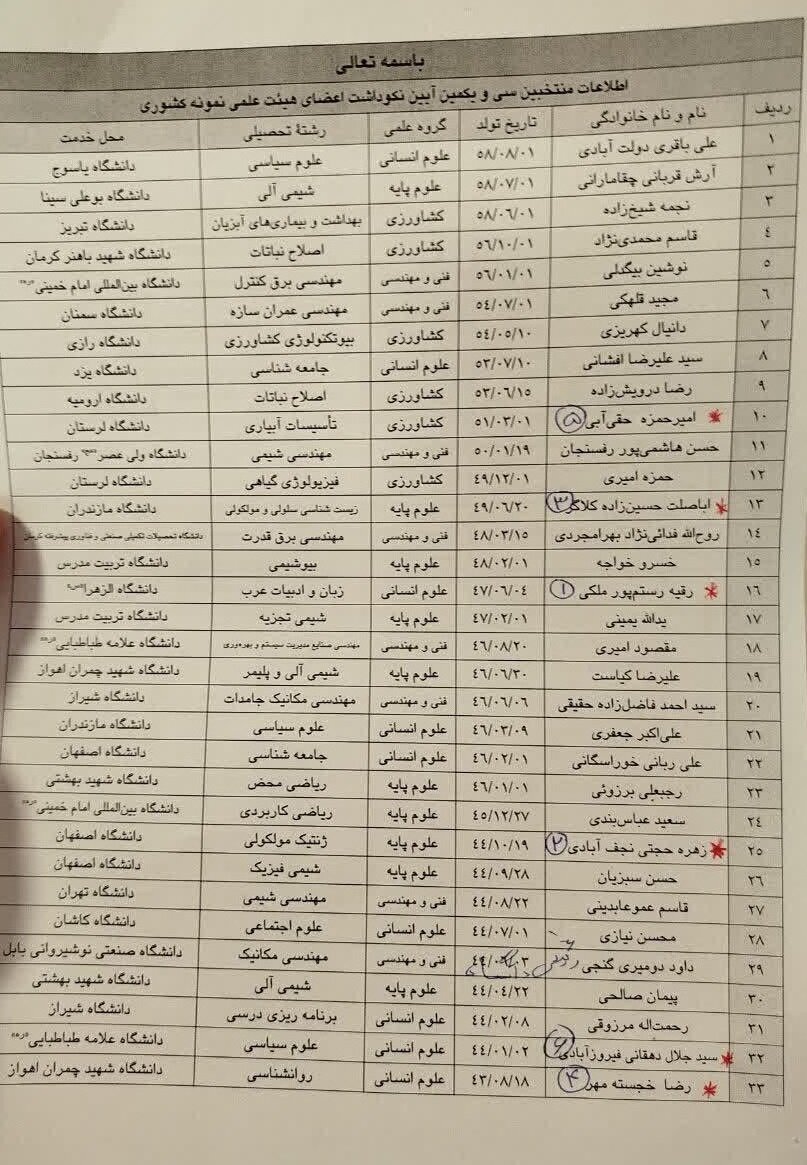 باسمه تعالی
اطلاعات منتخبین سی و یکمین آیین نکوداشت اعضای هیئت علمی نمونه کشوری
ردیف نام و نام خانوادگی تاریخ تولد گروه علمی رشتهٔ تحصیلی محل خدمت
۱ علی باقری دولت آبادی ۵۸/۰۸/۰۱ علوم انسانی علوم سیاسی دانشگاه یاسوج
۲ آرش قربانی چقامارانی ۵۸/۰۷/۰۱ علوم پایه شیمی آلی دانشگاه بوعلی سینا
۳ نجمه شیخ‌زاده ۵۸/۰۶/۰۱ کشاورزی بهداشت و بیماری‌های آبزیان دانشگاه تبریز
۴ قاسم محمدی‌نژاد ۵۶/۱۰/۰۱ کشاورزی اصلاح نباتات دانشگاه شهید باهنر کرمان
۵ نوشین بیگدلی ۵۶/۰۱/۰۱ فنی و مهندسی مهندسی برق کنترل دانشگاه بین‌المللی امام خمینی
۶ مجید قلهکی ۵۴/۰۷/۰۱ فنی و مهندسی مهندسی عمران سازه دانشگاه سمنان
۷ دانیال کهریزی ۵۴/۰۵/۱۰ کشاورزی بیوتکنولوژی کشاورزی دانشگاه رازی
۸ سید علیرضا افشانی ۵۳/۰۷/۱۰ علوم انسانی جامعه شناسی دانشگاه یزد
۹ رضا درویش‌زاده ۵۳/۰۶/۱۵ کشاورزی اصلاح نباتات دانشگاه ارومیه
۱۰ امیرحمزه حقی‌آبی ۵ ۵۱/۰۳/۰۱ کشاورزی تأسیسات آبیاری دانشگاه لرستان
۱۱ حسن هاشمی‌پور رفسنجان ۵۰/۰۱/۱۹ فنی و مهندسی مهندسی شیمی دانشگاه ولی عصر رفسنجان
۱۲ حمزه امیری ۴۹/۱۲/۰۱ کشاورزی فیزیولوژی گیاهی دانشگاه لرستان
۱۳ اباصلت حسین‌زاده کلاگر ۳ ۴۹/۰۶/۲۰ علوم پایه زیست شناسی سلولی و مولکولی دانشگاه مازندران
۱۴ روح‌الله فدائی‌نژاد بهرامجردی ۴۸/۰۳/۱۵ فنی و مهندسی مهندسی برق قدرت دانشگاه تحصیلات تکمیلی صنعتی و فناوری پیشرفته کرمان
۱۵ خسرو خواجه ۴۸/۰۲/۰۱ علوم پایه بیوشیمی دانشگاه تربیت مدرس
۱۶ رقیه رستم‌پور ملکی ۱ ۴۷/۰۶/۰۴ علوم انسانی زبان و ادبیات عرب دانشگاه الزهرا
۱۷ یدالله یمینی ۴۷/۰۲/۰۱ علوم پایه شیمی تجزیه دانشگاه تربیت مدرس
۱۸ مقصود امیری ۴۶/۰۸/۲۰ فنی و مهندسی مهندسی صنایع مدیریت سیستم و بهره‌وری دانشگاه علامه طباطبایی
۱۹ علیرضا کیاست ۴۶/۰۶/۳۰ علوم پایه شیمی آلی و پلیمر دانشگاه شهید چمران اهواز
۲۰ سید احمد فاضل‌زاده حقیقی ۴۶/۰۶/۰۶ فنی و مهندسی مهندسی مکانیک جامدات دانشگاه شیراز
۲۱ علی‌اکبر جعفری ۴۶/۰۳/۰۹ علوم انسانی علوم سیاسی دانشگاه مازندران
۲۲ علی ربانی خوراسگانی ۴۶/۰۲/۰۱ علوم انسانی جامعه شناسی دانشگاه اصفهان
۲۳ رجبعلی برزوئی ۴۶/۰۱/۰۱ علوم پایه ریاضی محض دانشگاه شهید بهشتی
۲۴ سعید عباس‌بندی ۴۵/۱۲/۲۷ علوم پایه ریاضی کاربردی دانشگاه بین‌المللی امام خمینی
۲۵ زهره حجتی نجف آبادی ۲ ۴۴/۱۰/۱۹ علوم پایه ژنتیک مولکولی دانشگاه اصفهان
۲۶ حسن سبزیان ۴۴/۰۹/۲۸ علوم پایه شیمی فیزیک دانشگاه اصفهان
۲۷ قاسم عموعابدینی ۴۴/۰۸/۲۲ فنی و مهندسی مهندسی شیمی دانشگاه تهران
۲۸ محسن نیازی ۴۴/۰۷/۰۱ علوم انسانی علوم اجتماعی دانشگاه کاشان
۲۹ داود دومیری گنجی فنی و مهندسی مهندسی مکانیک دانشگاه صنعتی نوشیروانی بابل
۳۰ پیمان صالحی ۴۴/۰۴/۲۲ علوم پایه شیمی آلی دانشگاه شهید بهشتی
۳۱ رحمت‌اله مرزوقی ۴۴/۰۲/۰۸ علوم انسانی برنامه ریزی درسی دانشگاه شیراز
۳۲ سید جلال دهقانی فیروزآبادی ۶ ۴۴/۰۱/۰۲ علوم انسانی علوم سیاسی دانشگاه علامه طباطبایی
۳۳ رضا خجسته مهر ۴ ۴۳/۰۸/۱۸ علوم انسانی روانشناسی دانشگاه شهید چمران اهواز